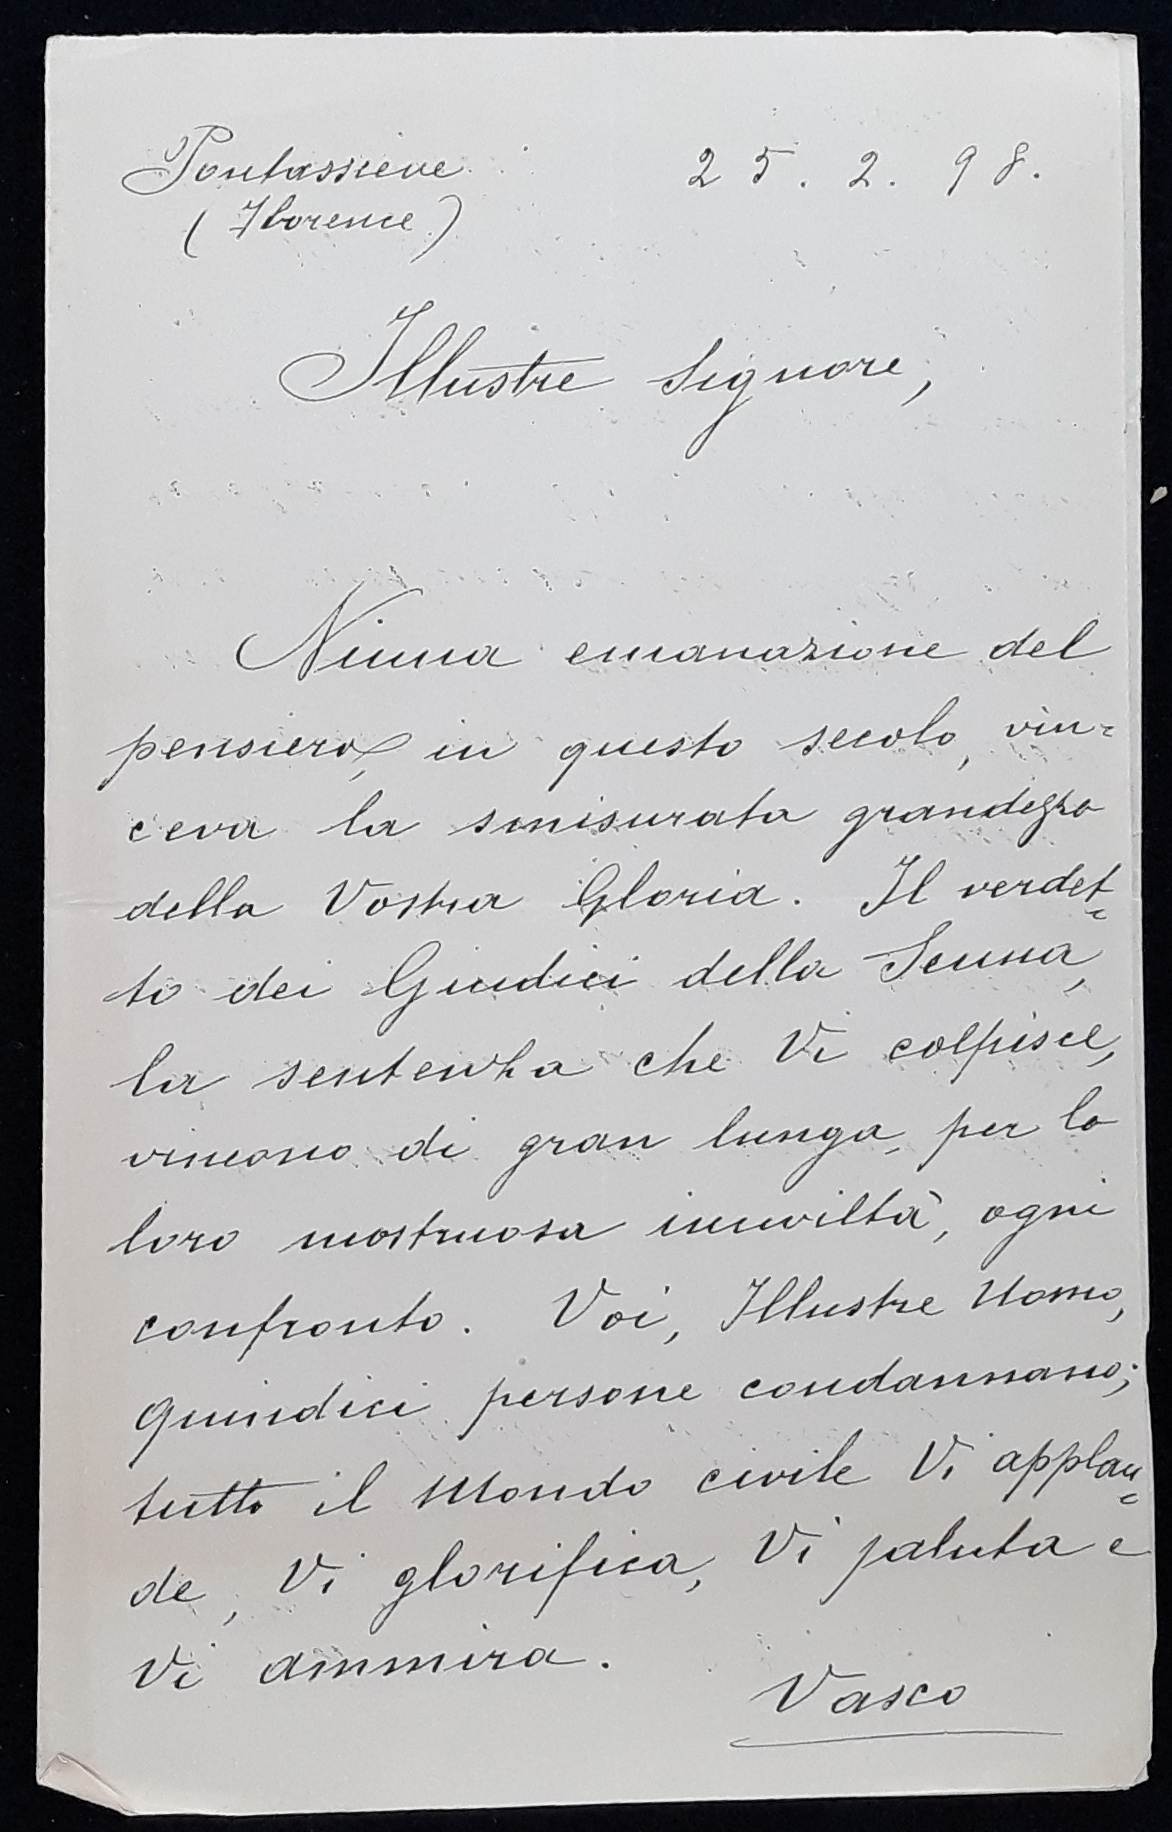 Pontassieve 25.2.98.
(Florence)
Illustre Signore,
Niuna emanazione del
pensiero, in questo secolo, vin-
ceva la smisurata grandezza
della Vostra Gloria. Il verdet-
to dei Giudici della Senna,
la sentenza che Vi colpisce,
vincono di gran lunga, per la
loro mostruosa inciviltà, ogni
confronto. Voi, Illustre Uomo,
quindici persone condannano;
tutto il Mondo civile Vi applau-
de, Vi glorifica, Vi saluta e
Vi ammira.
Vasco